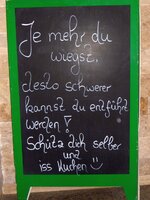 Je mehr du
wiegst,
desto schwerer
kannst du entführt
werden!
Schütz dich selber
und
iss Kuchen